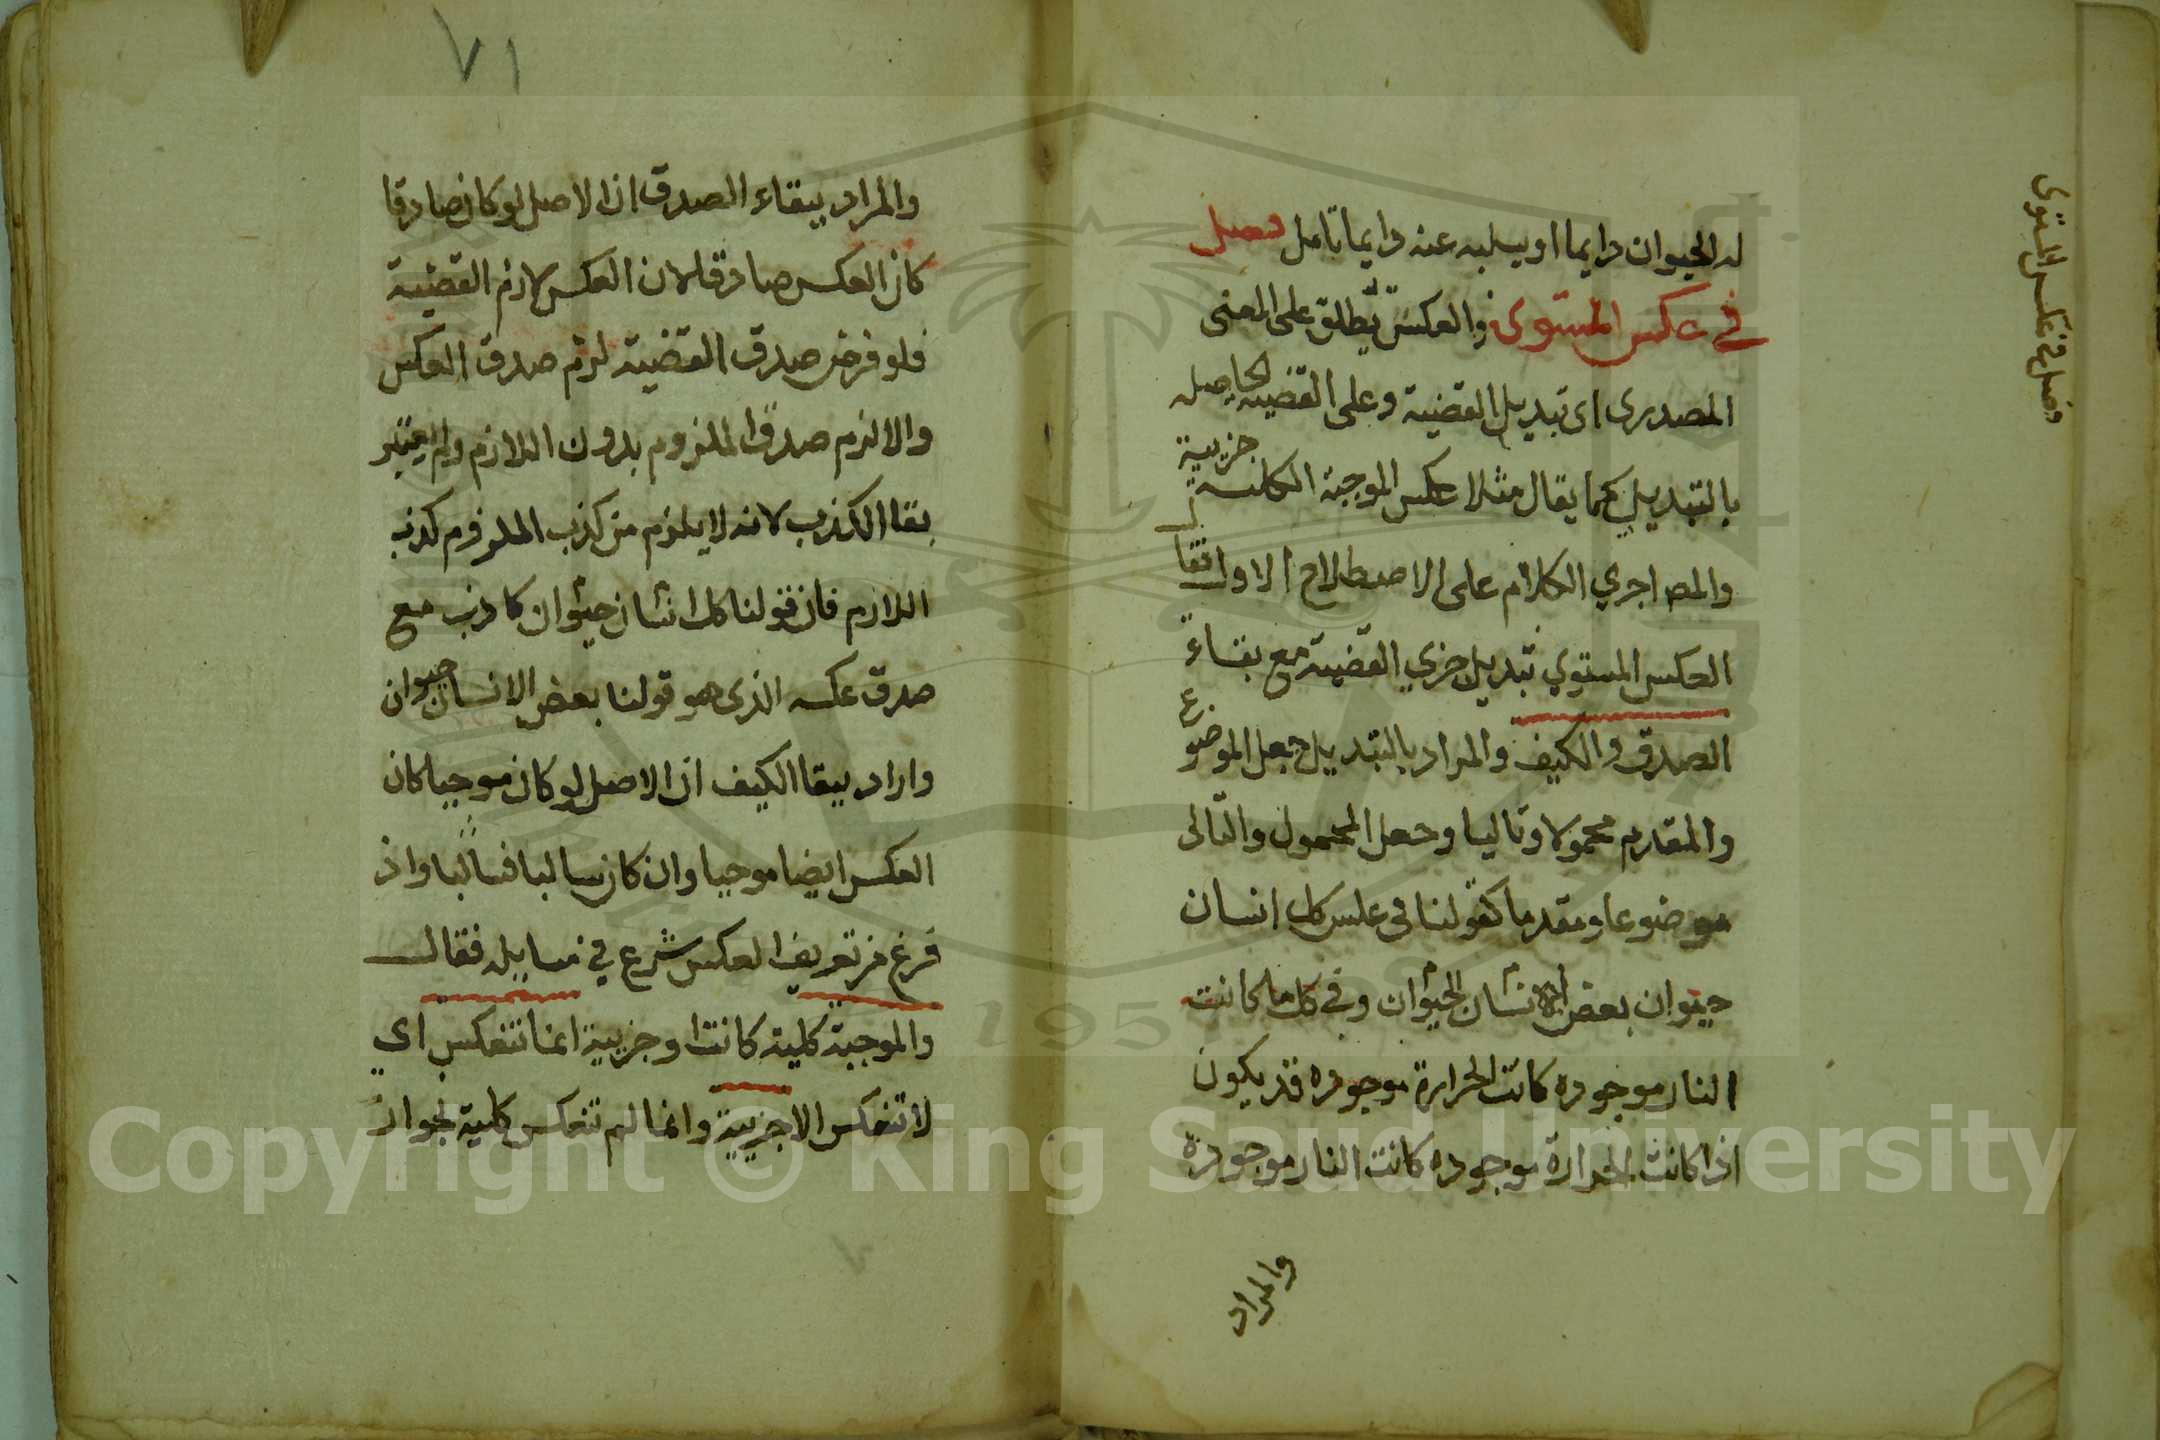 له الحيوان دايما او يسلبه عنه دايما تامل فصل
في عكس المستوى والعكس يطلق على المعنى
المصدرى اى تبديل القضية وعلى القضية الحاصله
بالتبديل كما يقال مثلا عكس الموجبة الكلية جزيية
والمص اجري الكلام على الاصطلاح الاول فقال
العكس المستوي تبديل جزي القضية مع بقاء
الصدق والكيف والمراد بالتبديل جعل الموضوع
والمقدم محمولا وتاليا وجعل المحمول والتالى
موضوعا ومقدما كقولنا فى عكس كل انسان
حيوان بعض الانسان الحيوان وفي كل ما كانت
النار موجوده كانت الحرارة موجوده قد يكون
اذا كانت الحرارة موجوده كانت النار موجودة
والمراد
فصل في عكس المستوى
٧١
والمراد ببقاء الصدق ان الاصل لو كان صادقا
كان العكس صادقا لان العكس لازم القضية
فلو فرض صدق القضية لزم صدق العكس
والا لزم صدق الملزوم بدون اللازم ولم يعتبر
بقا الكذب لانه لا يلزم من كذب الملزوم كذب
اللازم فان قولنا كل انسان حيوان كاذب مع
صدق عكسه الذى هو قولنا بعض الانسان حيوان
واراد ببقا الكيف ان الاصل لو كان موجبا كان
العكس ايضا موجبا وان كان سالبا فسالبا واذ
فرغ من تعريف العكس شرع في مسايله فقال
والموجبة كلية كانت او جزيية انما تنعكس اي
لا تنعكس الا جزيية وانما لم تنعكس كلية لجواز
Copyright © King Saud University
195